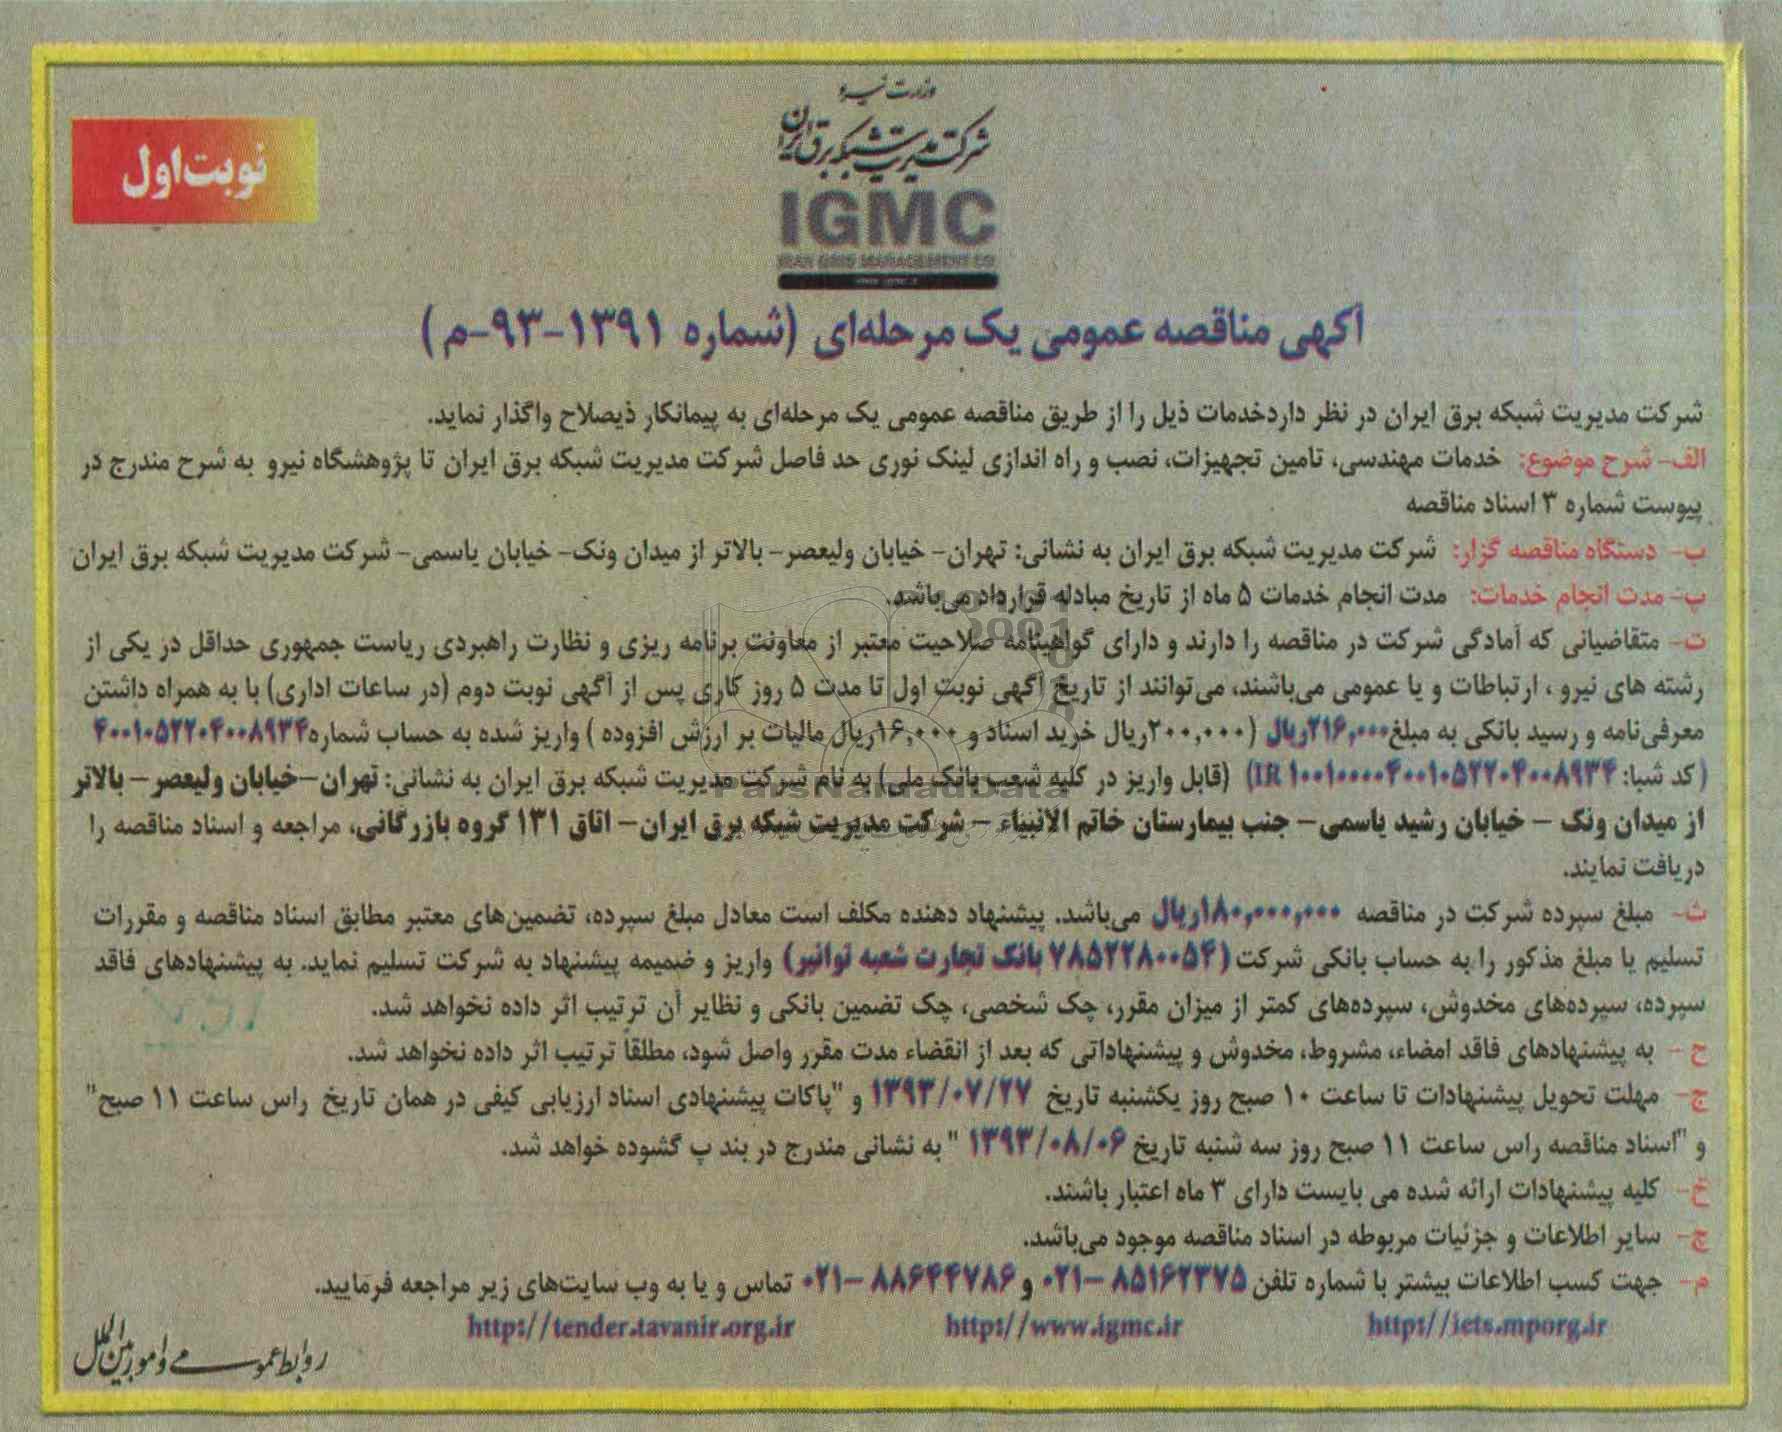 وزارت نیرو
شرکت مدیریت شبکه برق ایران
نوبت اول
IGMC
IRAN GRID MANAGEMENT CO
آگهی مناقصه عمومی یک مرحله‌ای (شماره ۱۳۹۱-۹۳-م)
شرکت مدیریت شبکه برق ایران در نظر داردخدمات ذیل را از طریق مناقصه عمومی یک مرحله‌ای به پیمانکار ذیصلاح واگذار نماید.
الف- شرح موضوع: خدمات مهندسی، تامین تجهیزات، نصب و راه اندازی لینک نوری حد فاصل شرکت مدیریت شبکه برق ایران تا پژوهشگاه نیرو به شرح مندرج در
پیوست شماره ۳ اسناد مناقصه
ب- دستگاه مناقصه گزار: شرکت مدیریت شبکه برق ایران به نشانی: تهران- خیابان ولیعصر- بالاتر از میدان ونک- خیابان یاسمی- شرکت مدیریت شبکه برق ایران
پ- مدت انجام خدمات: مدت انجام خدمات ۵ ماه از تاریخ مبادله قرارداد می‌باشد.
ت- متقاضیانی که آمادگی شرکت در مناقصه را دارند و دارای گواهینامه صلاحیت معتبر از معاونت برنامه ریزی و نظارت راهبردی ریاست جمهوری حداقل در یکی از
رشته های نیرو ، ارتباطات و یا عمومی می‌باشند، می‌توانند از تاریخ آگهی نوبت اول تا مدت ۵ روز کاری پس از آگهی نوبت دوم (در ساعات اداری) با به همراه داشتن
معرفی‌نامه و رسید بانکی به مبلغ ۲۱۶,۰۰۰ریال (۲۰۰,۰۰۰ریال خرید اسناد و ۱۶,۰۰۰ریال مالیات بر ارزش افزوده ) واریز شده به حساب شماره ۴۰۰۱۰۵۲۲۰۴۰۰۸۹۳۴
( کد شبا: IR ۱۰۰۱۰۰۰۰۴۰۰۱۰۵۲۲۰۴۰۰۸۹۳۴) (قابل واریز در کلیه شعب بانک ملی) به نام شرکت مدیریت شبکه برق ایران به نشانی: تهران-خیابان ولیعصر- بالاتر
از میدان ونک - خیابان رشید یاسمی- جنب بیمارستان خاتم الانبیاء - شرکت مدیریت شبکه برق ایران- اتاق ۱۳۱ گروه بازرگانی، مراجعه و اسناد مناقصه را
دریافت نمایند.
ث- مبلغ سپرده شرکت در مناقصه ۱۸۰,۰۰۰,۰۰۰ریال می‌باشد. پیشنهاد دهنده مکلف است معادل مبلغ سپرده، تضمین‌های معتبر مطابق اسناد مناقصه و مقررات
تسلیم یا مبلغ مذکور را به حساب بانکی شرکت (۷۸۵۲۲۸۰۰۵۴ بانک تجارت شعبه توانیر) واریز و ضمیمه پیشنهاد به شرکت تسلیم نماید. به پیشنهادهای فاقد
سپرده، سپرده‌های مخدوش، سپرده‌های کمتر از میزان مقرر، چک شخصی، چک تضمین بانکی و نظایر آن ترتیب اثر داده نخواهد شد.
ح - به پیشنهادهای فاقد امضاء، مشروط، مخدوش و پیشنهاداتی که بعد از انقضاء مدت مقرر واصل شود، مطلقاً ترتیب اثر داده نخواهد شد.
ج- مهلت تحویل پیشنهادات تا ساعت ۱۰ صبح روز یکشنبه تاریخ ۱۳۹۳/۰۷/۲۷ و "پاکات پیشنهادی اسناد ارزیابی کیفی در همان تاریخ راس ساعت ۱۱ صبح"
و "اسناد مناقصه راس ساعت ۱۱ صبح روز سه شنبه تاریخ ۱۳۹۳/۰۸/۰۶ " به نشانی مندرج در بند پ گشوده خواهد شد.
خ- کلیه پیشنهادات ارائه شده می بایست دارای ۳ ماه اعتبار باشند.
چ- سایر اطلاعات و جزئیات مربوطه در اسناد مناقصه موجود می‌باشد.
م- جهت کسب اطلاعات بیشتر با شماره تلفن ۸۵۱۶۲۳۷۵ -۰۲۱ و ۸۸۶۴۴۷۸۶ -۰۲۱ تماس و یا به وب سایت‌های زیر مراجعه فرمایید.
http://iets.mporg.ir http://www.igmc.ir http://tender.tavanir.org.ir
روابط عمومی و امور بین الملل
ParsNamadData